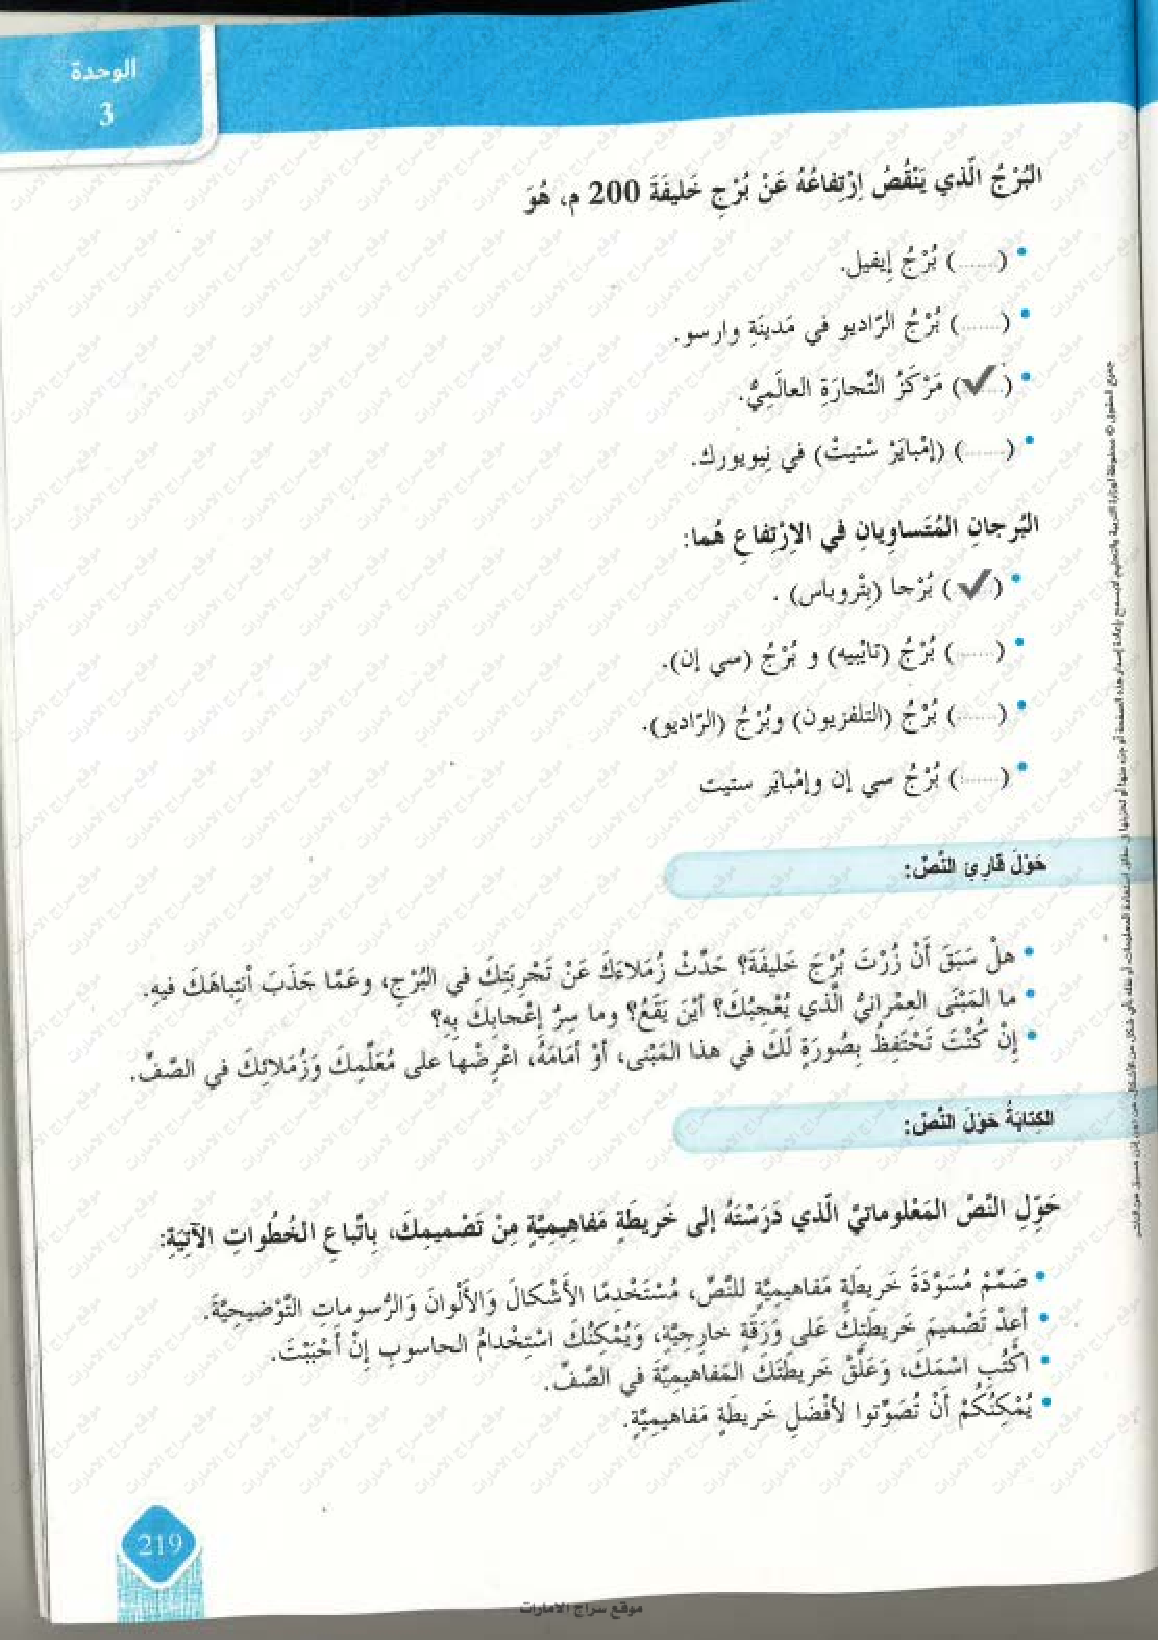 الوحدة
3
البُرْجُ الَّذي يَنْقُصُ اِرْتِفاعُهُ عَنْ بُرْجِ خَليفَةَ 200 م، هُوَ
• (......) بُرْجُ إيفيل.
• (......) بُرْجُ الرّاديو في مَدينَةِ وارسو.
• (✓) مَرْكَزُ التِّجارَةِ العالَمِيُّ.
• (......) (إمْبايَرْ سْتيتْ) في نِيويورك.
البُرجانِ المُتَساوِيانِ في الاِرْتِفاعِ هُما:
• (✓) بُرْجا (بِتْروباس) .
• (......) بُرْجُ (تايْبيه) و بُرْجُ (سي إن).
• (......) بُرْجُ (التلفزيون) وبُرْجُ (الرّاديو).
• (......) بُرْجُ سي إن وإمْبايَر ستيت
حَوْلَ قارِئِ النَّصِّ:
• هلْ سَبَقَ أَنْ زُرْتَ بُرْجَ خَليفَةَ؟ حَدِّثْ زُمَلاءَكَ عَنْ تَجْرِبَتِكَ في البُرْجِ، وعَمّا جَذَبَ انْتِباهَكَ فيهِ.
• ما المَبْنَى العِمْرانيُّ الَّذي يُعْجِبُكَ؟ أيْنَ يَقَعُ؟ وما سِرُّ إعْجابِكَ بِهِ؟
• إنْ كُنْتَ تَحْتَفِظُ بِصُورَةٍ لَكَ في هذا المَبْنى، أوْ أمَامَهُ، اعْرِضْها على مُعَلِّمِكَ وَزُمَلائِكَ في الصَّفِّ.
الكِتابَةُ حَوْلَ النَّصِّ:
حَوِّلِ النَّصَّ المَعْلوماتيَّ الَّذي دَرَسْتَهُ إلى خَريطَةٍ مَفاهيمِيَّةٍ مِنْ تَصْميمِكَ، بِاتِّباعِ الخُطُواتِ الآتِيَةِ:
• صَمِّمْ مُسَوَّدَةَ خَريطَةٍ مَفاهيمِيَّةٍ للنَّصِّ، مُسْتَخْدِمًا الأَشْكالَ وَالأَلْوانَ وَالرُّسوماتِ التَّوْضيحِيَّةَ.
• أعِدْ تَصْميمَ خَريطَتِكَ عَلى وَرَقَةٍ خارِجِيَّةٍ، وَيُمْكِنُكَ اسْتِخْدامُ الحاسوبِ إنْ أَحْبَبْتَ.
• اكْتُبِ اسْمَكَ، وَعَلِّقْ خَريطَتَكَ المَفاهيمِيَّةَ في الصَّفِّ.
• يُمْكِنُكُمْ أَنْ تُصَوِّتوا لأفْضَلِ خَريطَةٍ مَفاهيمِيَّةٍ.
219
موقع سراج الامارات